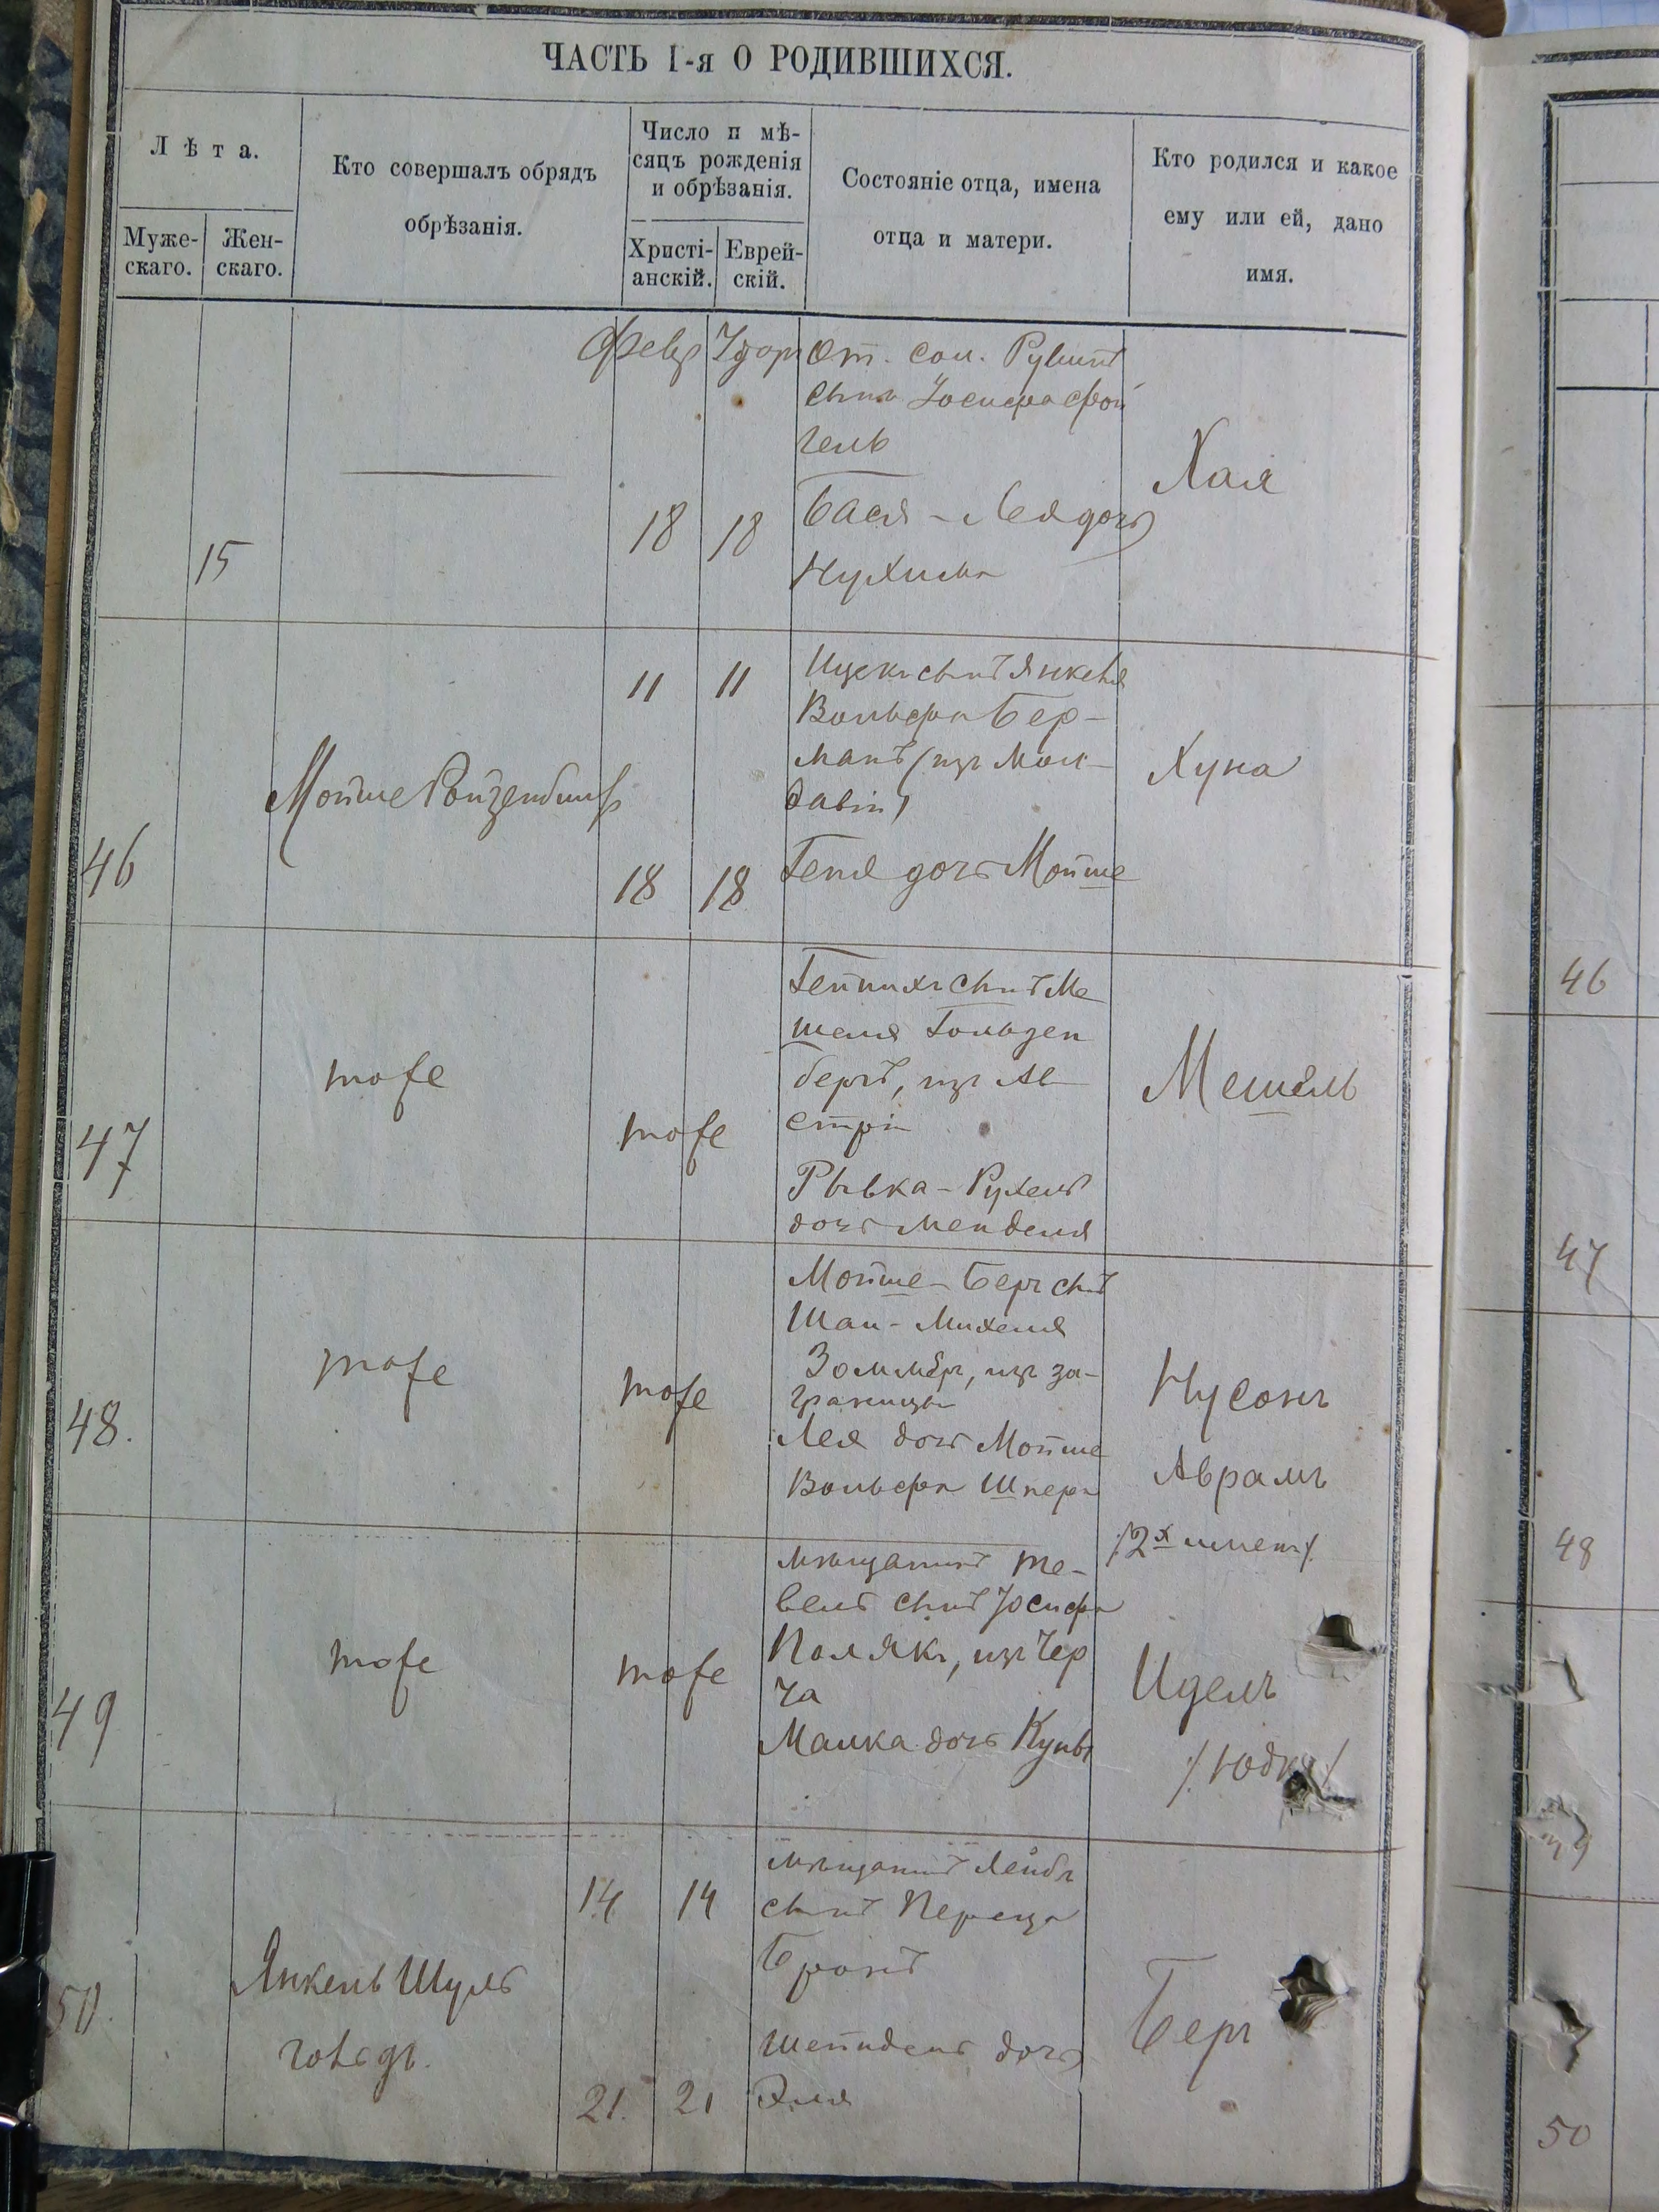 ЧАСТЬ I-я О РОДИВШИХСЯ.
Лѣта.
Муже-
скаго.
Жен-
скаго.
Кто совершалъ обрядъ
обрѣзанія.
Число и мѣ-
сяцъ рожденія
и обрѣзанія.
Христі-
анскій.
Еврей-
скій.
Состояніе отца, имена
отца и матери.
Кто родился и какое
ему или ей, дано
имя.
15
Февр
18
18
От. сол. Рувинъ
сынъ Іосифа Фой
гель
Бася - Лея дочь
Нухима
Хая
46
Мойше Ройзенблитъ
11 11
18 18
Ицекъ сынъ Янкеля
Вольфа Бер-
манъ (изъ Мол-
давіи)
Геня дочь Мойше
Хуна
47
тоже
тоже
Гейнихъ сынъ Ме
шеля Гольден
бергъ, изъ Ав
стріи
Рывка - Рухель
дочь Менделя
Мешель
48.
тоже
тоже
Мойше - Беръ сынъ
Шаи - Михеля
Зоммеръ, изъ за-
границы
Лея дочь Мойше
Вольфа Шперъ
Нусонъ
Аврамъ
/2х именъ/
49
тоже
тоже
мѣщанинъ Те-
вель сынъ Іосифа
Полякъ, изъ Чер
ча
Малка дочь Куны
Идель
/Юдка/
50.
Янкель Шуль
14 14
21. 21
мѣщанинъ Лейбъ
сынъ Переца
Бронъ
Шейндель дочь
Эля
Беръ
46
47
48
49
50